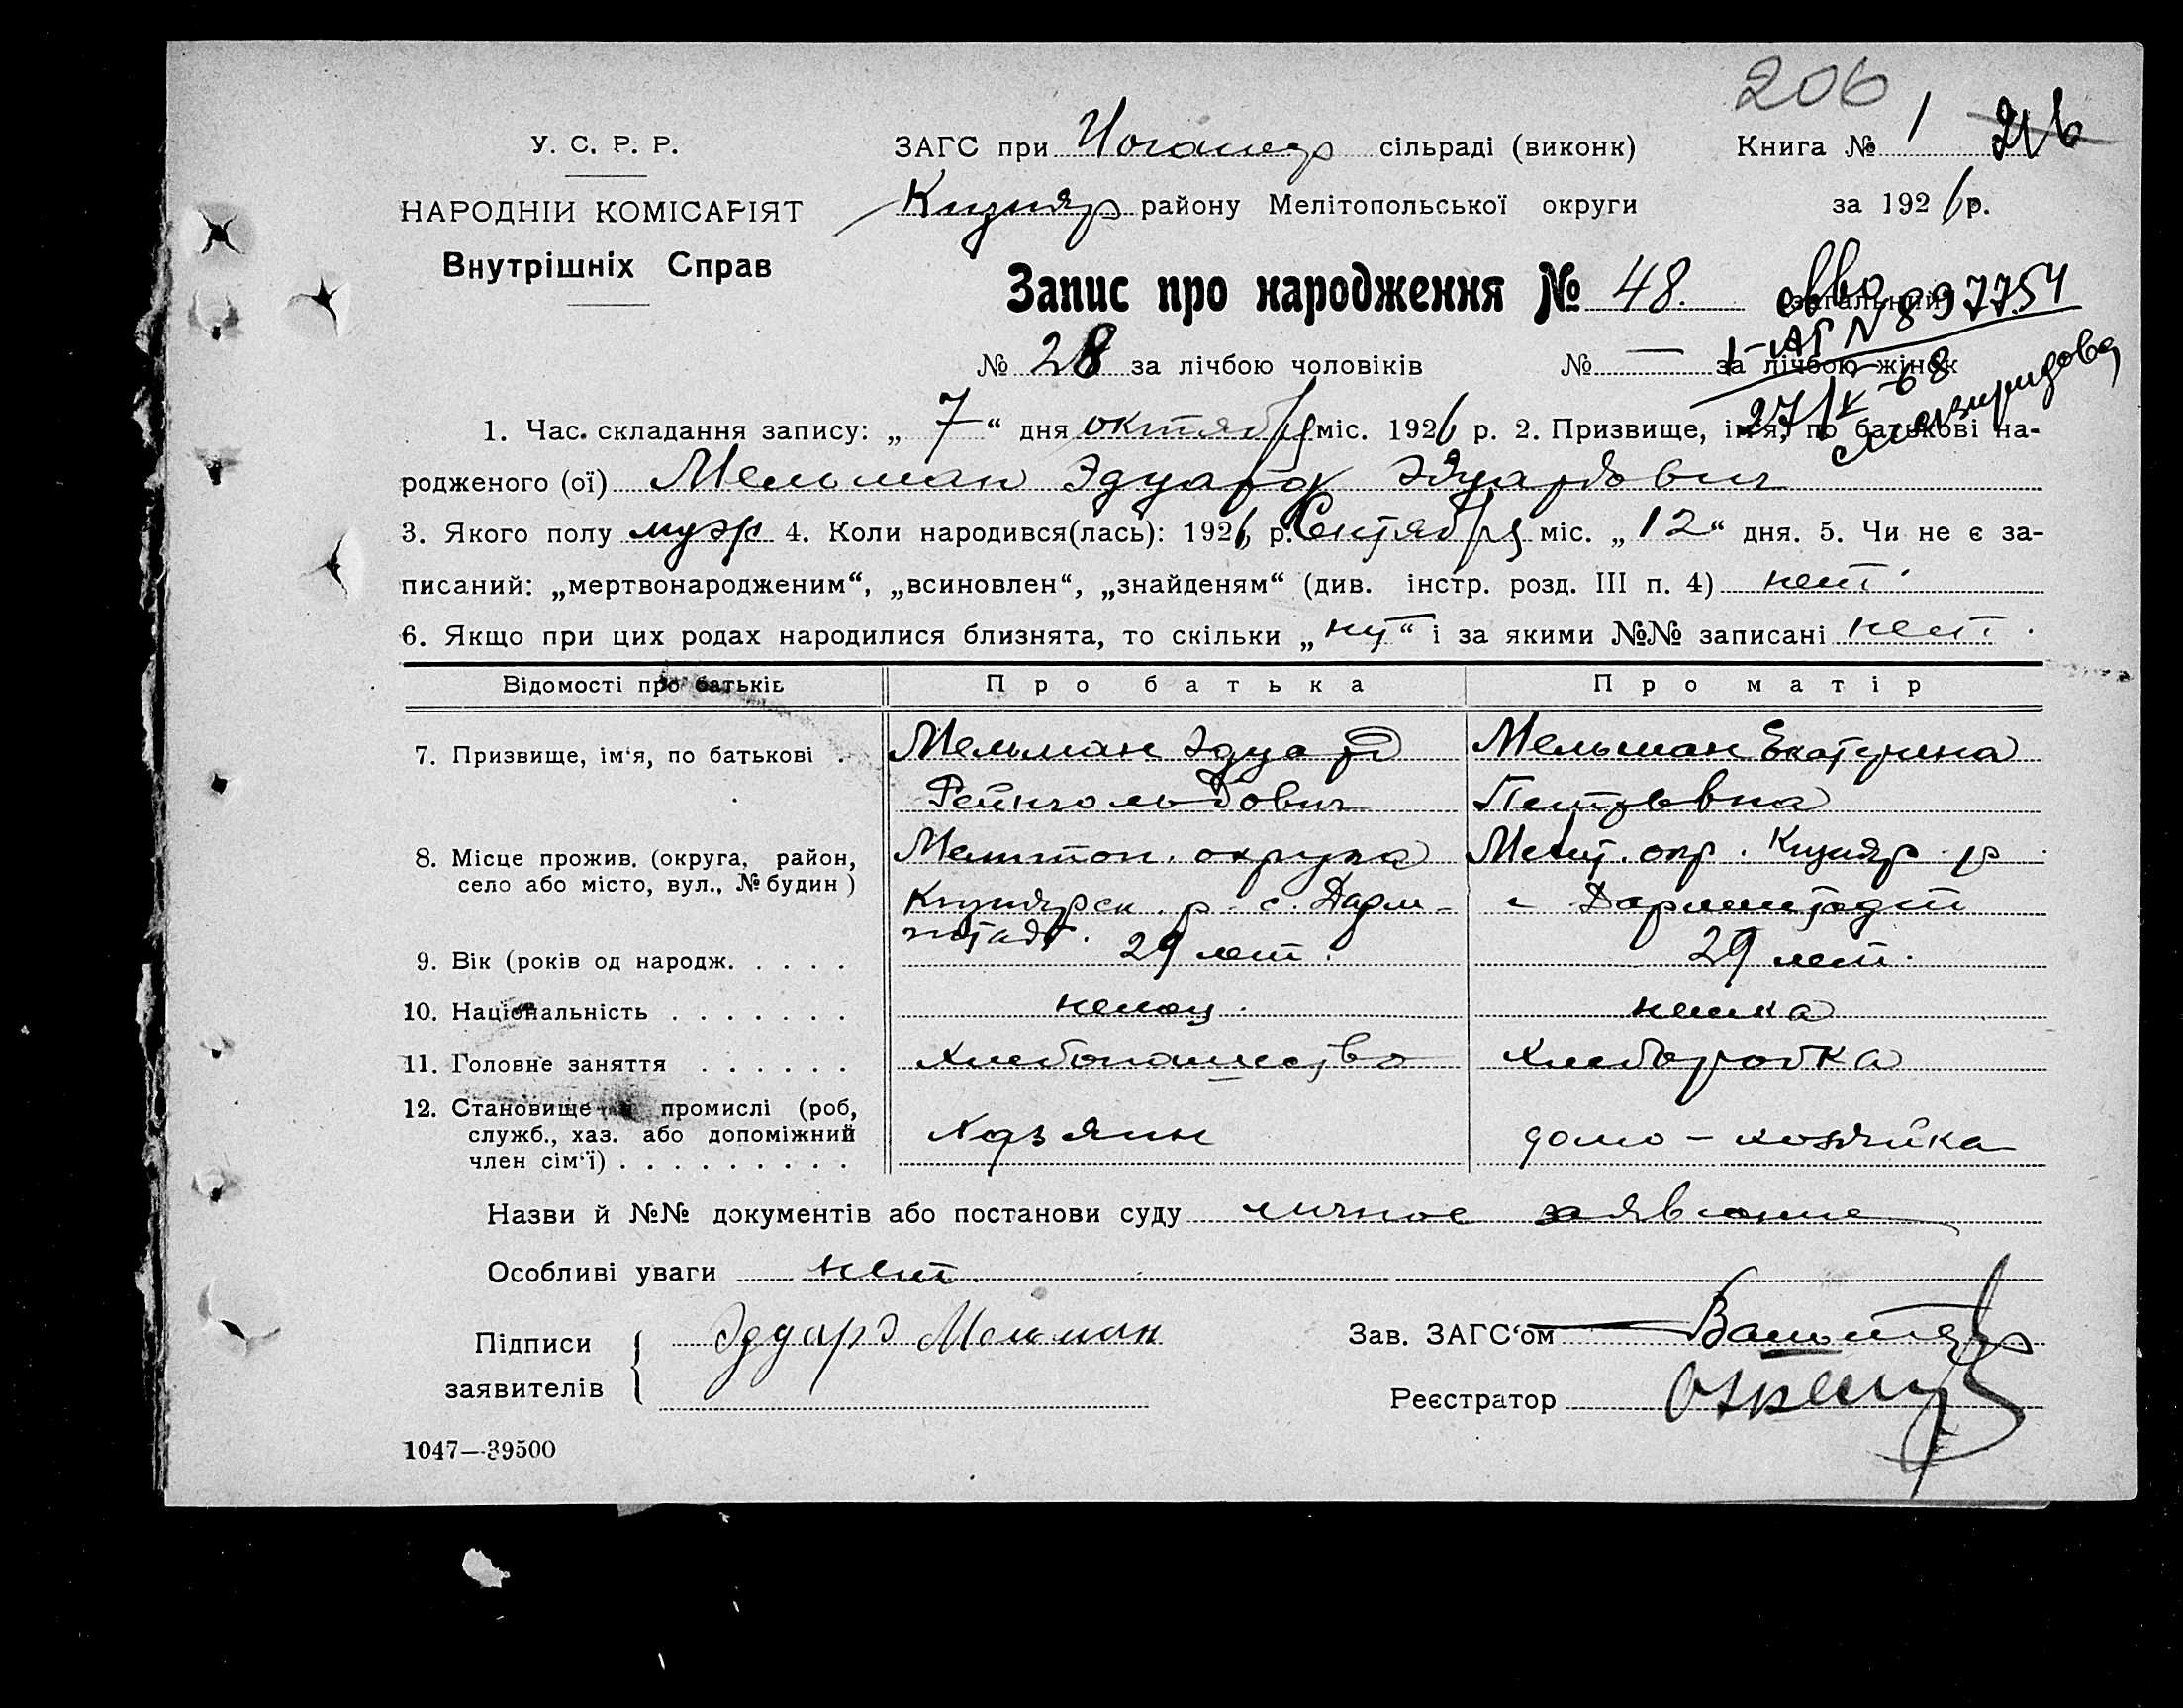 206
У. С. Р. Р.
ЗАГС при сільраді (виконк)
Книга № 1
НАРОДНІЙ КОМІСАРІЯТ
Кизияр району Мелітопольської округи
за 1926 р.
Внутрішніх Справ
Запис про народження № 48. загальний
№ 28 за лічбою чоловіків № — за лічбою жінок
1. Час складання запису: „ 7 “ дня октября міс. 1926 р. 2. Призвище, ім'я, по батькові на-
родженого (ої) Мельман Эдуард Эдуардович
3. Якого полу муж 4. Коли народився(лась): 1926 р. Сентября міс. „ 12 “ дня. 5. Чи не є за-
писаний: „мертвонародженим“, „всиновлен“, „знайденям“ (див. інстр. розд. III п. 4) нет
6. Якщо при цих родах народилися близнята, то скільки „ “ і за якими №№ записані нет
Відомості про батьків Про батька Про матір
7. Призвище, ім‘я, по батькові . Мельман Эдуард Мельман Екатерина
Рейнгольдович Петровна
8. Місце прожив. (округа, район, Мелитоп. округа Мелит. окр. Кизияр. р
село або місто, вул., № будин ) Кизиярск. р. с. Дарм-
с Дармштадт
штадт.
9. Вік (років од народж. . . . . 29 лет. 29 лет.
10. Національність . . . . . . . немец. немка
11. Головне заняття . . . . . . хлебопашество хлеборобка
12. Становище в промислі (роб,
служб., хаз. або допоміжний Хозяин домо-хозяйка
член сім‘ї) . . . . . . . . .
Назви й №№ документів або постанови суду личное заявление
Особливі уваги нет.
Підписи
заявителів
Эдуард Мельман
Зав. ЗАГС‘ом
Реєстратор
1047—39500